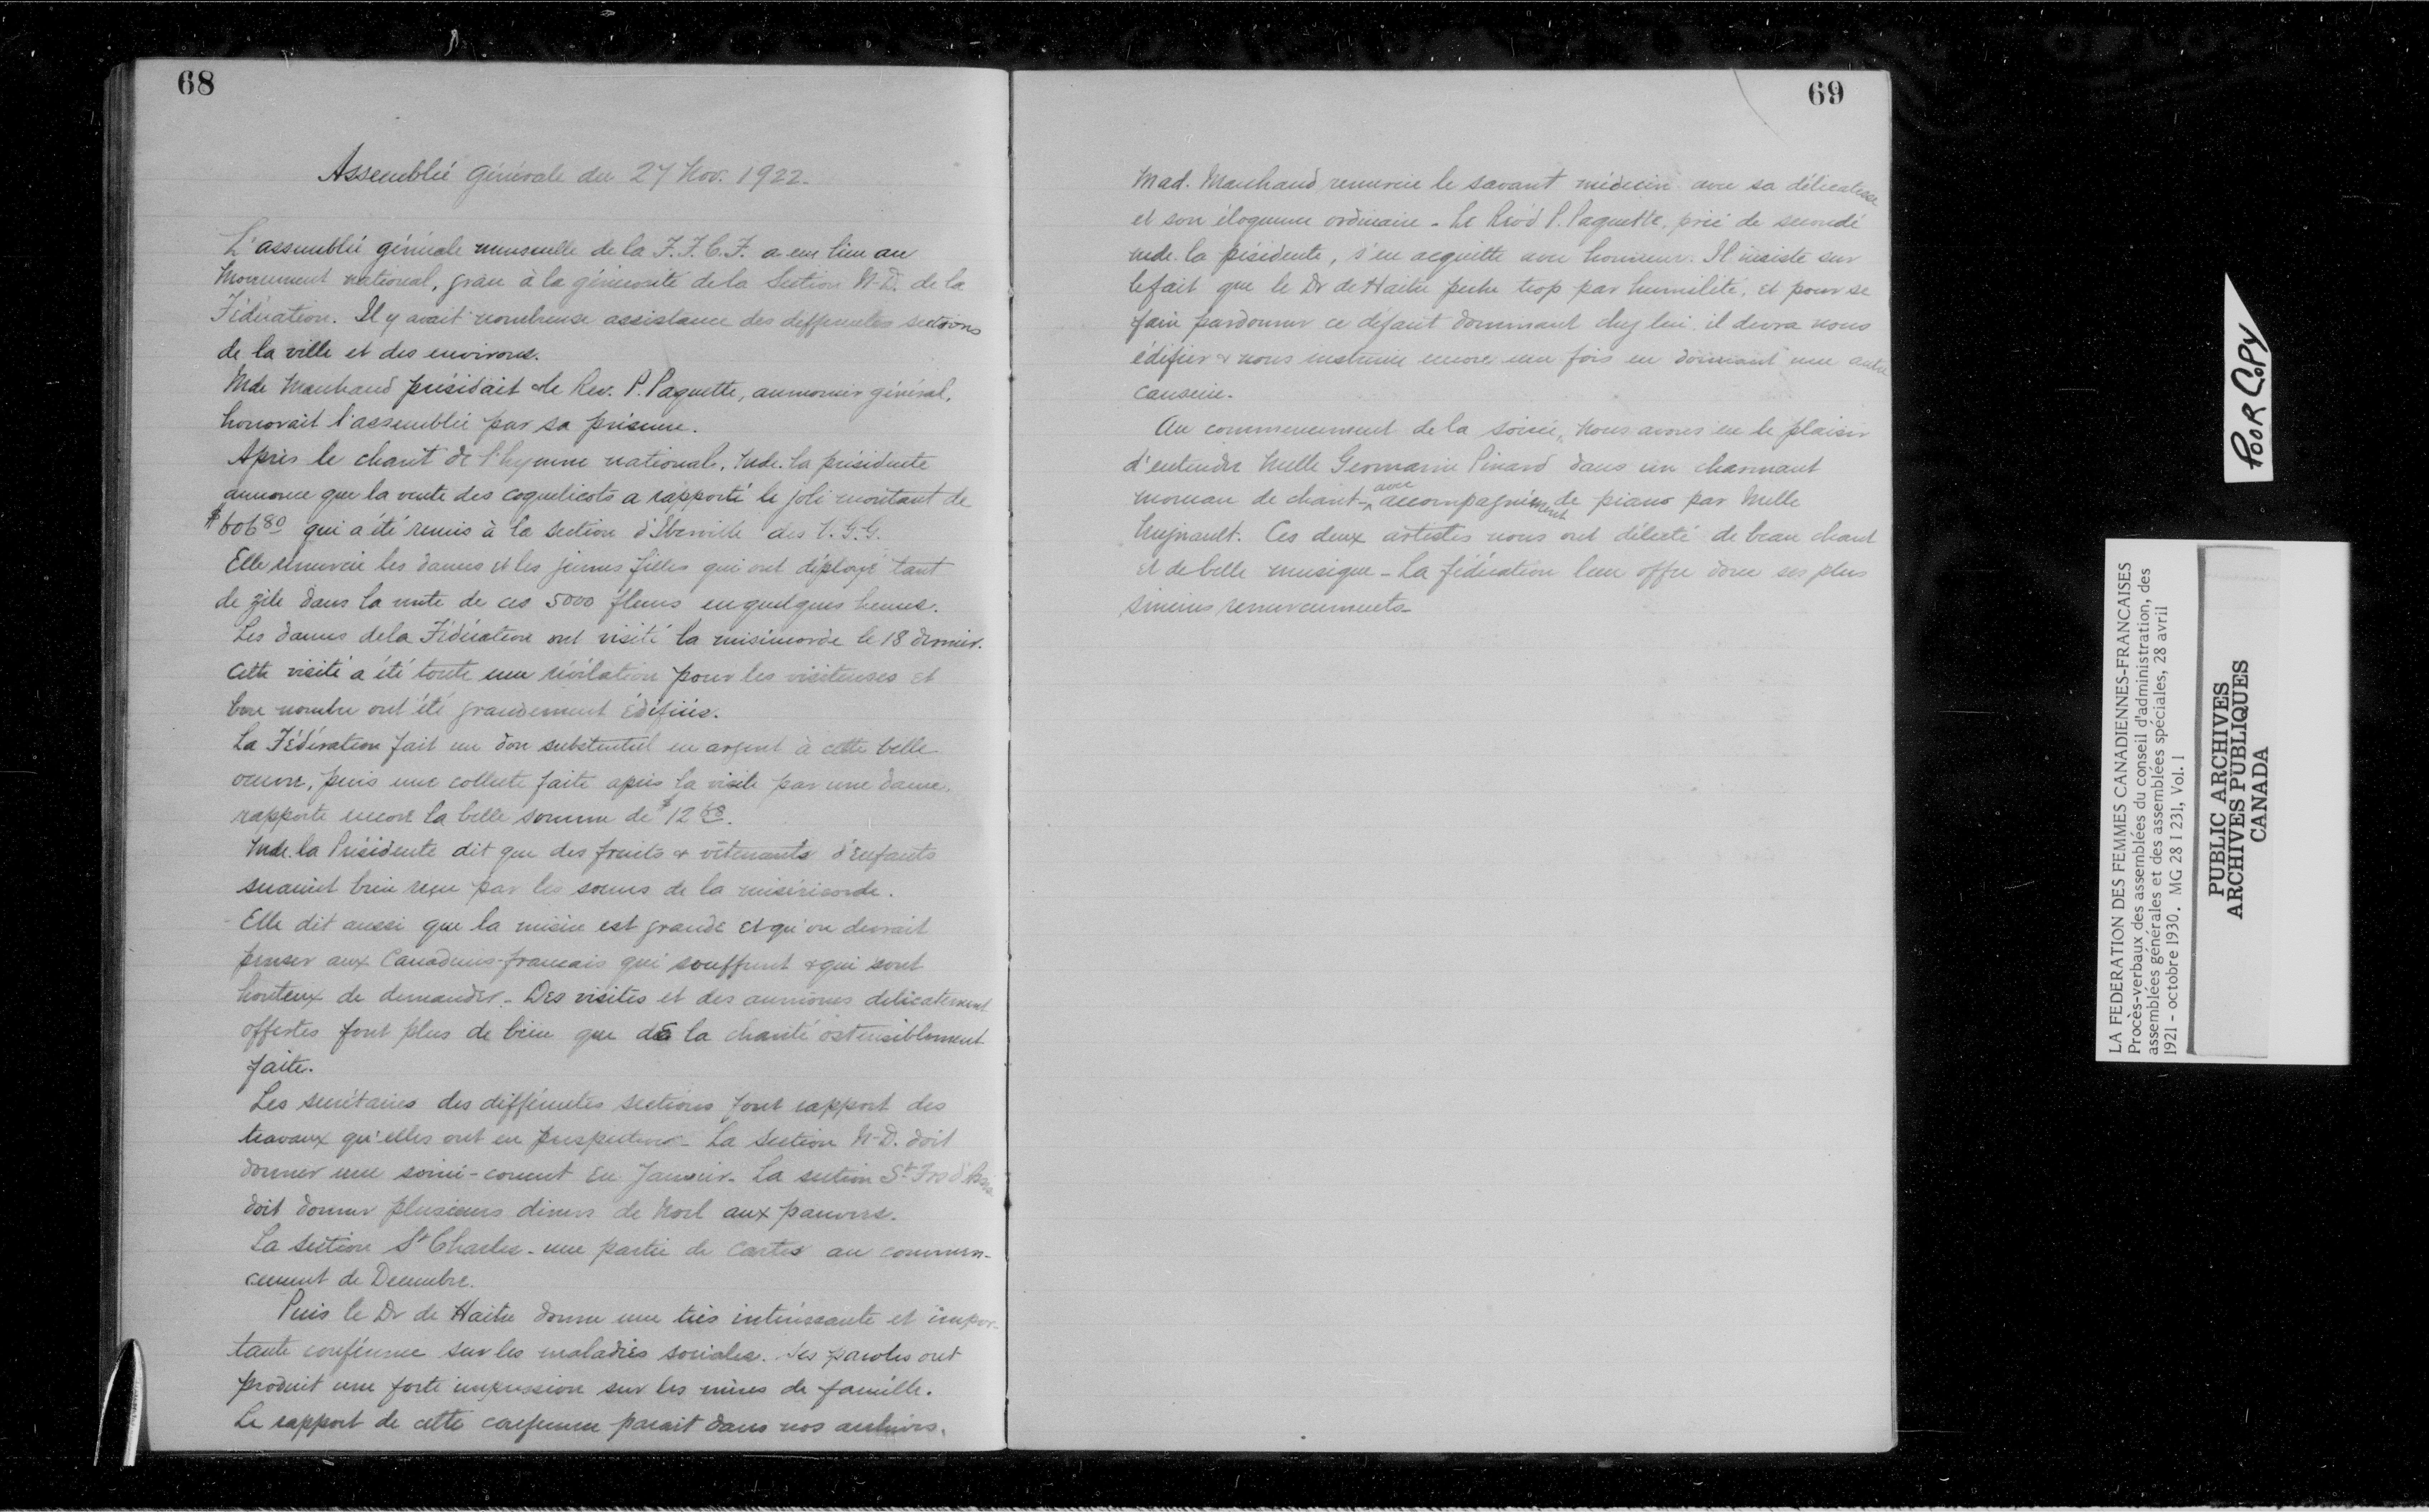 68
Assemblée générale du 27 Nov. 1922.
L'assemblée générale mensuelle de la F.F.C.F. a eu lieu au
Monument national, grâce à la générosité de la Section N-D. de la
Fédération. Il y avait nombreuse assistance des differentes sections
de la ville et des environs.
Mde Marchand présidait & le Rev. P. Paquette, aumonier général,
honorait l'assemblée par sa présence.
Après le chant de l'hymne national, Mde. la présidente
annonce que la vente des coquelicots a rapporté le joli montant de
$606 80 qui a été remis à la section d'Iberville des V.G.G.
Elle remercie les dames et les jeunes filles qui ont déployé tant
de zèle dans la vente de ces 5000 fleurs en quelques heures.
Les dames de la Fédération ont visité la miséricorde le 18 dernier.
Cette visite a été toute une révélation pour les visiteuses et
bon nombre ont été grandement édifiées.
La Fédération fait un don substentiel en argent à cette belle
oeuvre, puis une collecte faite après la visite par une dame,
rapporte encore la belle somme de $12
Mde. la Présidente dit que des fruits & vêtements d'enfants
seraient bien reçu par les soeurs de la miséricorde.
Elle dit aussi que la misère est grande et qu'on devrait
penser aux Canadiens-francais qui souffrent & qui sont
honteux de demander. Des visites et des aumones delicatement
offertes font plus de bien que de la charité ostensiblement
faite.
Les secrétaires des différentes sections font rapport des
travaux qu'elles ont en perspective - La Section N-D. doit
donner une soirée-concert en Janvier. La section St Frs d'Assise
doit donner plusieurs diners de Noel aux pauvres.
La section St Charles - une partie de cartes au commen-
cement de Decembre.
Puis le Dr de Haitre donne une très intéressante et impor-
tante conférence sur les maladies sociales. Ses paroles ont
produit une forte impression sur les mères de famille.
Le rapport de cette conference parait dans nos archives.
69
Mad. Marchand remercie le savant médecin avec sa délicatesse
et son éloquence ordinaire - Le Rév'd P. Paquette, prié de secondé
Mde. la présidente, s'en acquitte avec honneur. Il insiste sur
le fait que le Dr de Haitre peche trop par humilité, et pour se
faire pardonner ce défaut dominant chez lui, il devra nous
édifier & nous instruire encore une fois en donnant une autre
causerie.
Au commencement de la soirée, nous avons eu le plaisir
d'entendre Melle Germaine Pinard dans un charmant
morceau de chant - avec accompagnement de piano par Melle
Ces deux artistes nous ont délecté de beau chant
et de belle musique - La fédération leur offre donc ses plus
sincères remerciements -
POOR COPY
LA FEDERATION DES FEMMES CANADIENNES-FRANCAISES
Procès-verbaux des assemblées du conseil d'administration, des
assemblées générales et des assemblées spéciales, 28 avril
1921 - octobre 1930. MG 28 I 231, Vol. 1
PUBLIC ARCHIVES
ARCHIVES PUBLIQUES
CANADA